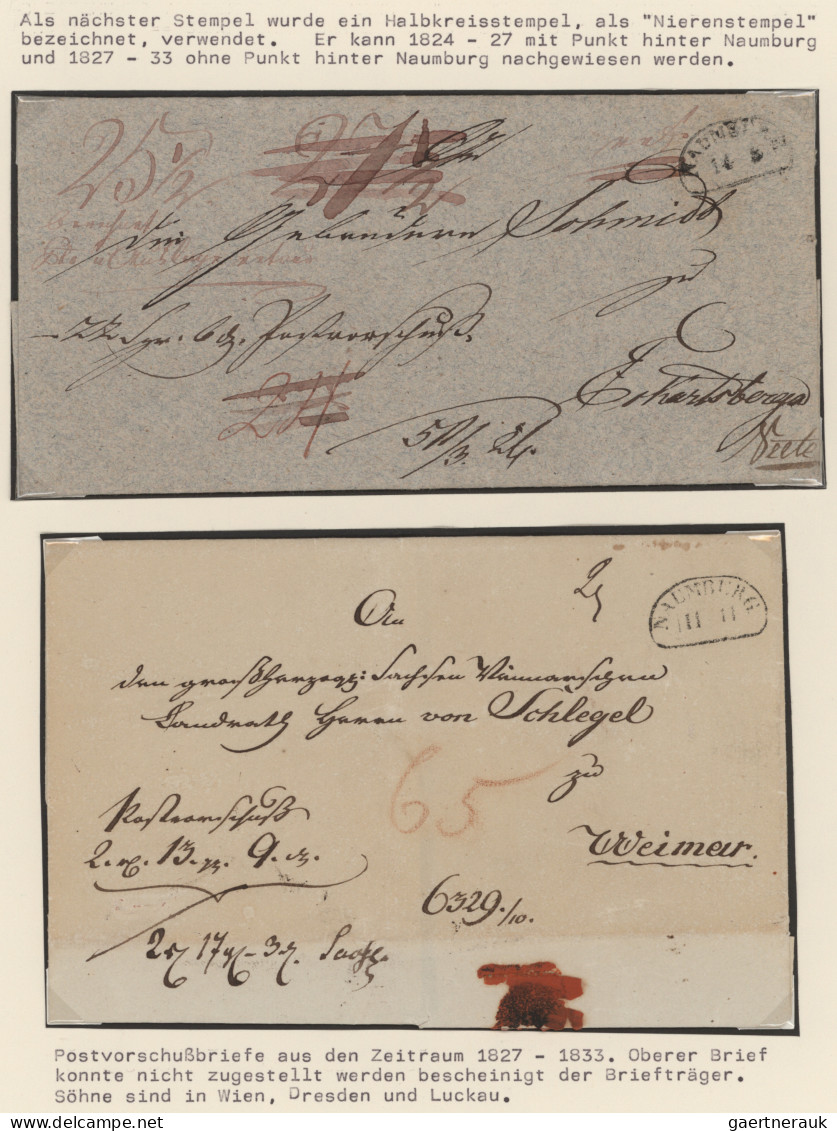 Als nächster Stempel wurde ein Halbkreisstempel, als "Nierenstempel"
bezeichnet, verwendet. Er kann 1824 - 27 mit Punkt hinter Naumburg
und 1827 - 33 ohne Punkt hinter Naumburg nachgewiesen werden.
25½
NAUMBURG
14 3
Die Gebrüdere Schmidt
zu
Postvorschuß.
24
Eckartsberga
NAUMBURG
11 11
An
den großherzogl: Sachsen Weimarschen
Landrath Herrn von Schlegel
65
zu
Postvorschuß
2. 13. 9.
Weimar.
6329./10.
17 3
Postvorschußbriefe aus den Zeitraum 1827 - 1833. Oberer Brief
konnte nicht zugestellt werden bescheinigt der Briefträger.
Söhne sind in Wien, Dresden und Luckau.
gaertnerauk